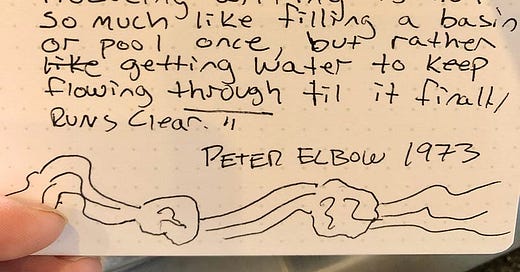 so much like filling a basin
or pool once, but rather
like getting water to keep
flowing through til it finally
RUNS Clear."
PETER ELBOW 1973